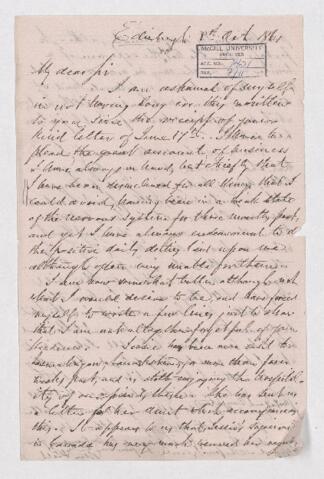 Edinburgh 8th Oct. 1861
McGILL UNIVERSITY
ACC. NO.
My dear Sir
I am ashamed of myself
in not having long ere this written
to you since the receipt of your
kind letter of June 17th. I have to
plead the great amount of business
I have always in hand, but chiefly that
I have been disinclined for all things that I
could avoid, having been in a weak state
of the nervous system for three months past,
and yet I have always endeavoured to do
the positive daily duties laid upon me
although often very unable for them.
I am now somewhat better although not
what I would desire to be, and have forced
myself to write a few lines just to show
that I am not altogether forgetful of your
kindness.
for more than four
weeks past, and is still enjoying the hospital-
ity of our friends there. She has sent us
a letter for her Aunt which accompanies
this. It appears to us that Jessie's sojourn
in Canada has very much